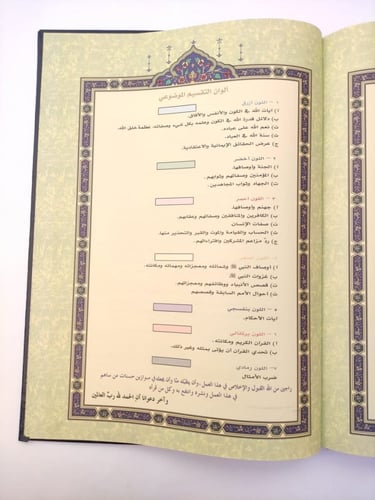 ألوان التقسيم الموضوعي
١ - اللون أزرق
أ) آيات الله في الكون والأنفس والآفاق.
ب) دلائل قدرة الله في الكون وعلمه بكل شيء وصفاته، عظمة خلق الله.
ت) نعم الله على عباده.
ث) سنة الله في العباد.
ج) عرض الحقائق الإيمانية والاعتقادية.
٢ - اللون أخضر
أ) الجنة وأوصافها.
ب) المؤمنين وصفاتهم وثوابهم.
ت) الجهاد وثواب المجاهدين.
٣ - اللون أحمر
أ) جهنم وأوصافها.
ب) الكافرين والمنافقين وصفاتهم وعقابهم.
ت) صفات الإنسان
ث) الحساب والقيامة والموت والقبر والتحذير منها.
ج) رد مزاعم المشركين وافتراءاتهم.
اللون
أ) أوصاف النبي ﷺ وشمائله ومعجزاته ومهماته ومكانته.
ب) غزوات النبي ﷺ
ت) قصص الأنبياء ووظائفهم ومعجزاتهم.
ث) أحوال الأمم السابقة وقصصهم
٥ - اللون بنفسجي
آيات الأحكام.
٦ - اللون برتقالي
أ) القرآن الكريم ومكانته.
ب) تحدي القرآن أن يؤتى بمثله وغير ذلك.
٧- اللون رمادي
ضرب الأمثال
راجين من الله القبول والإخلاص في هذا العمل، وأن يتقبله منا وأن يجعله في موازين حسنات من ساهم
في هذا العمل ونشره وانتفع به وكل من قرأه
وآخر دعوانا أن الحمد لله ربّ العالمين